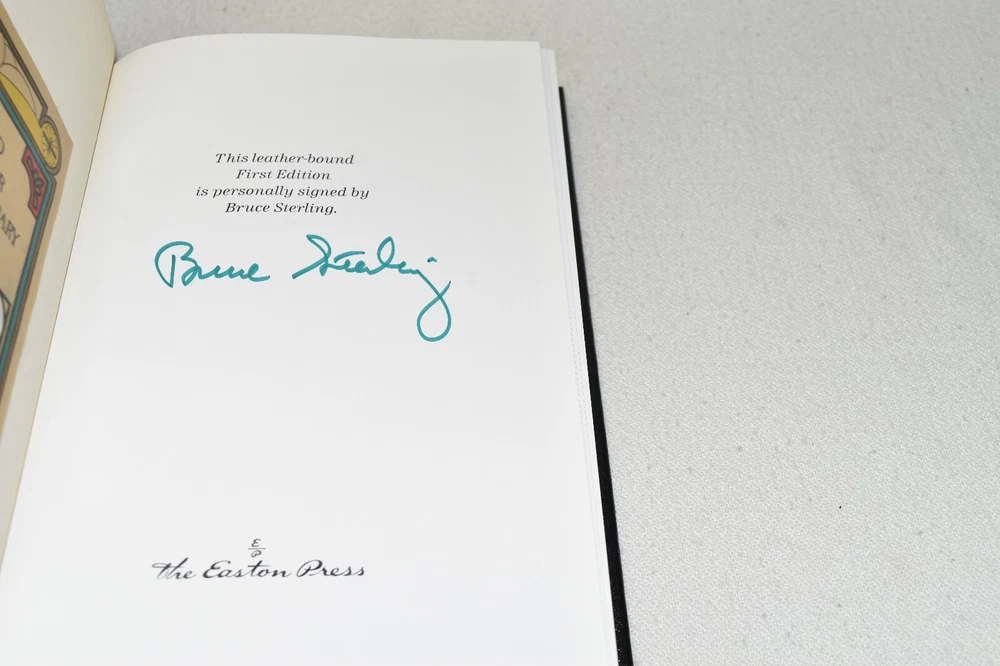 This leather-bound
First Edition
is personally signed by
Bruce Sterling.
Bruce Sterling
E
P
the Easton Press